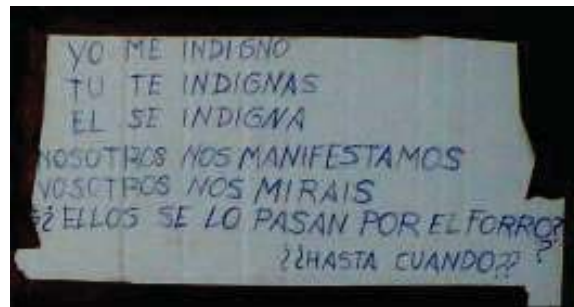 YO ME INDIGNO
TU TE INDIGNAS
EL SE INDIGNA
NOSOTROS NOS MANIFESTAMOS
VOSOTROS NOS MIRAIS
¿¿ELLOS SE LO PASAN POR EL FORRO??
¿¿HASTA CUANDO??